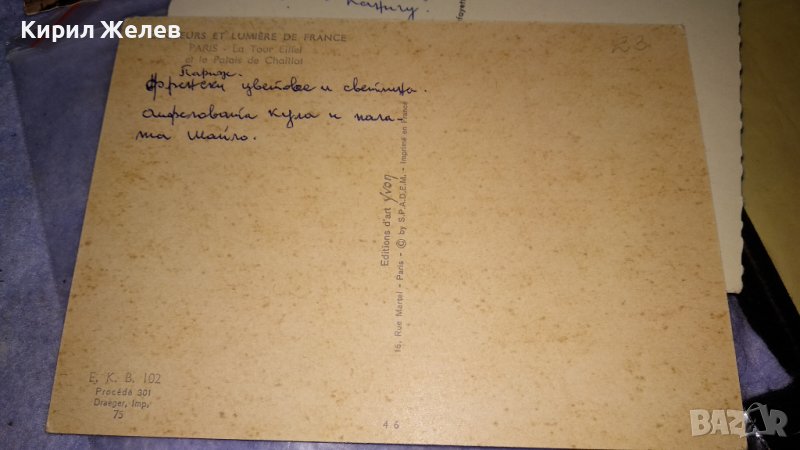 Кирил Желев
EURS ET LUMIÈRE DE FRANCE
PARIS - La Tour Eiffel
et le Palais de Chaillot
23
Париж.
Френски цветове и светлина.
Айфеловата кула и пала-
та Шайло.
Editions d'art yvon
15, Rue Martel - Paris - © by S.P.A.D.E.M. - Imprimé en France
E. K. B. 102
Procédé 301
Draeger, Imp.
75
46
BAZAR